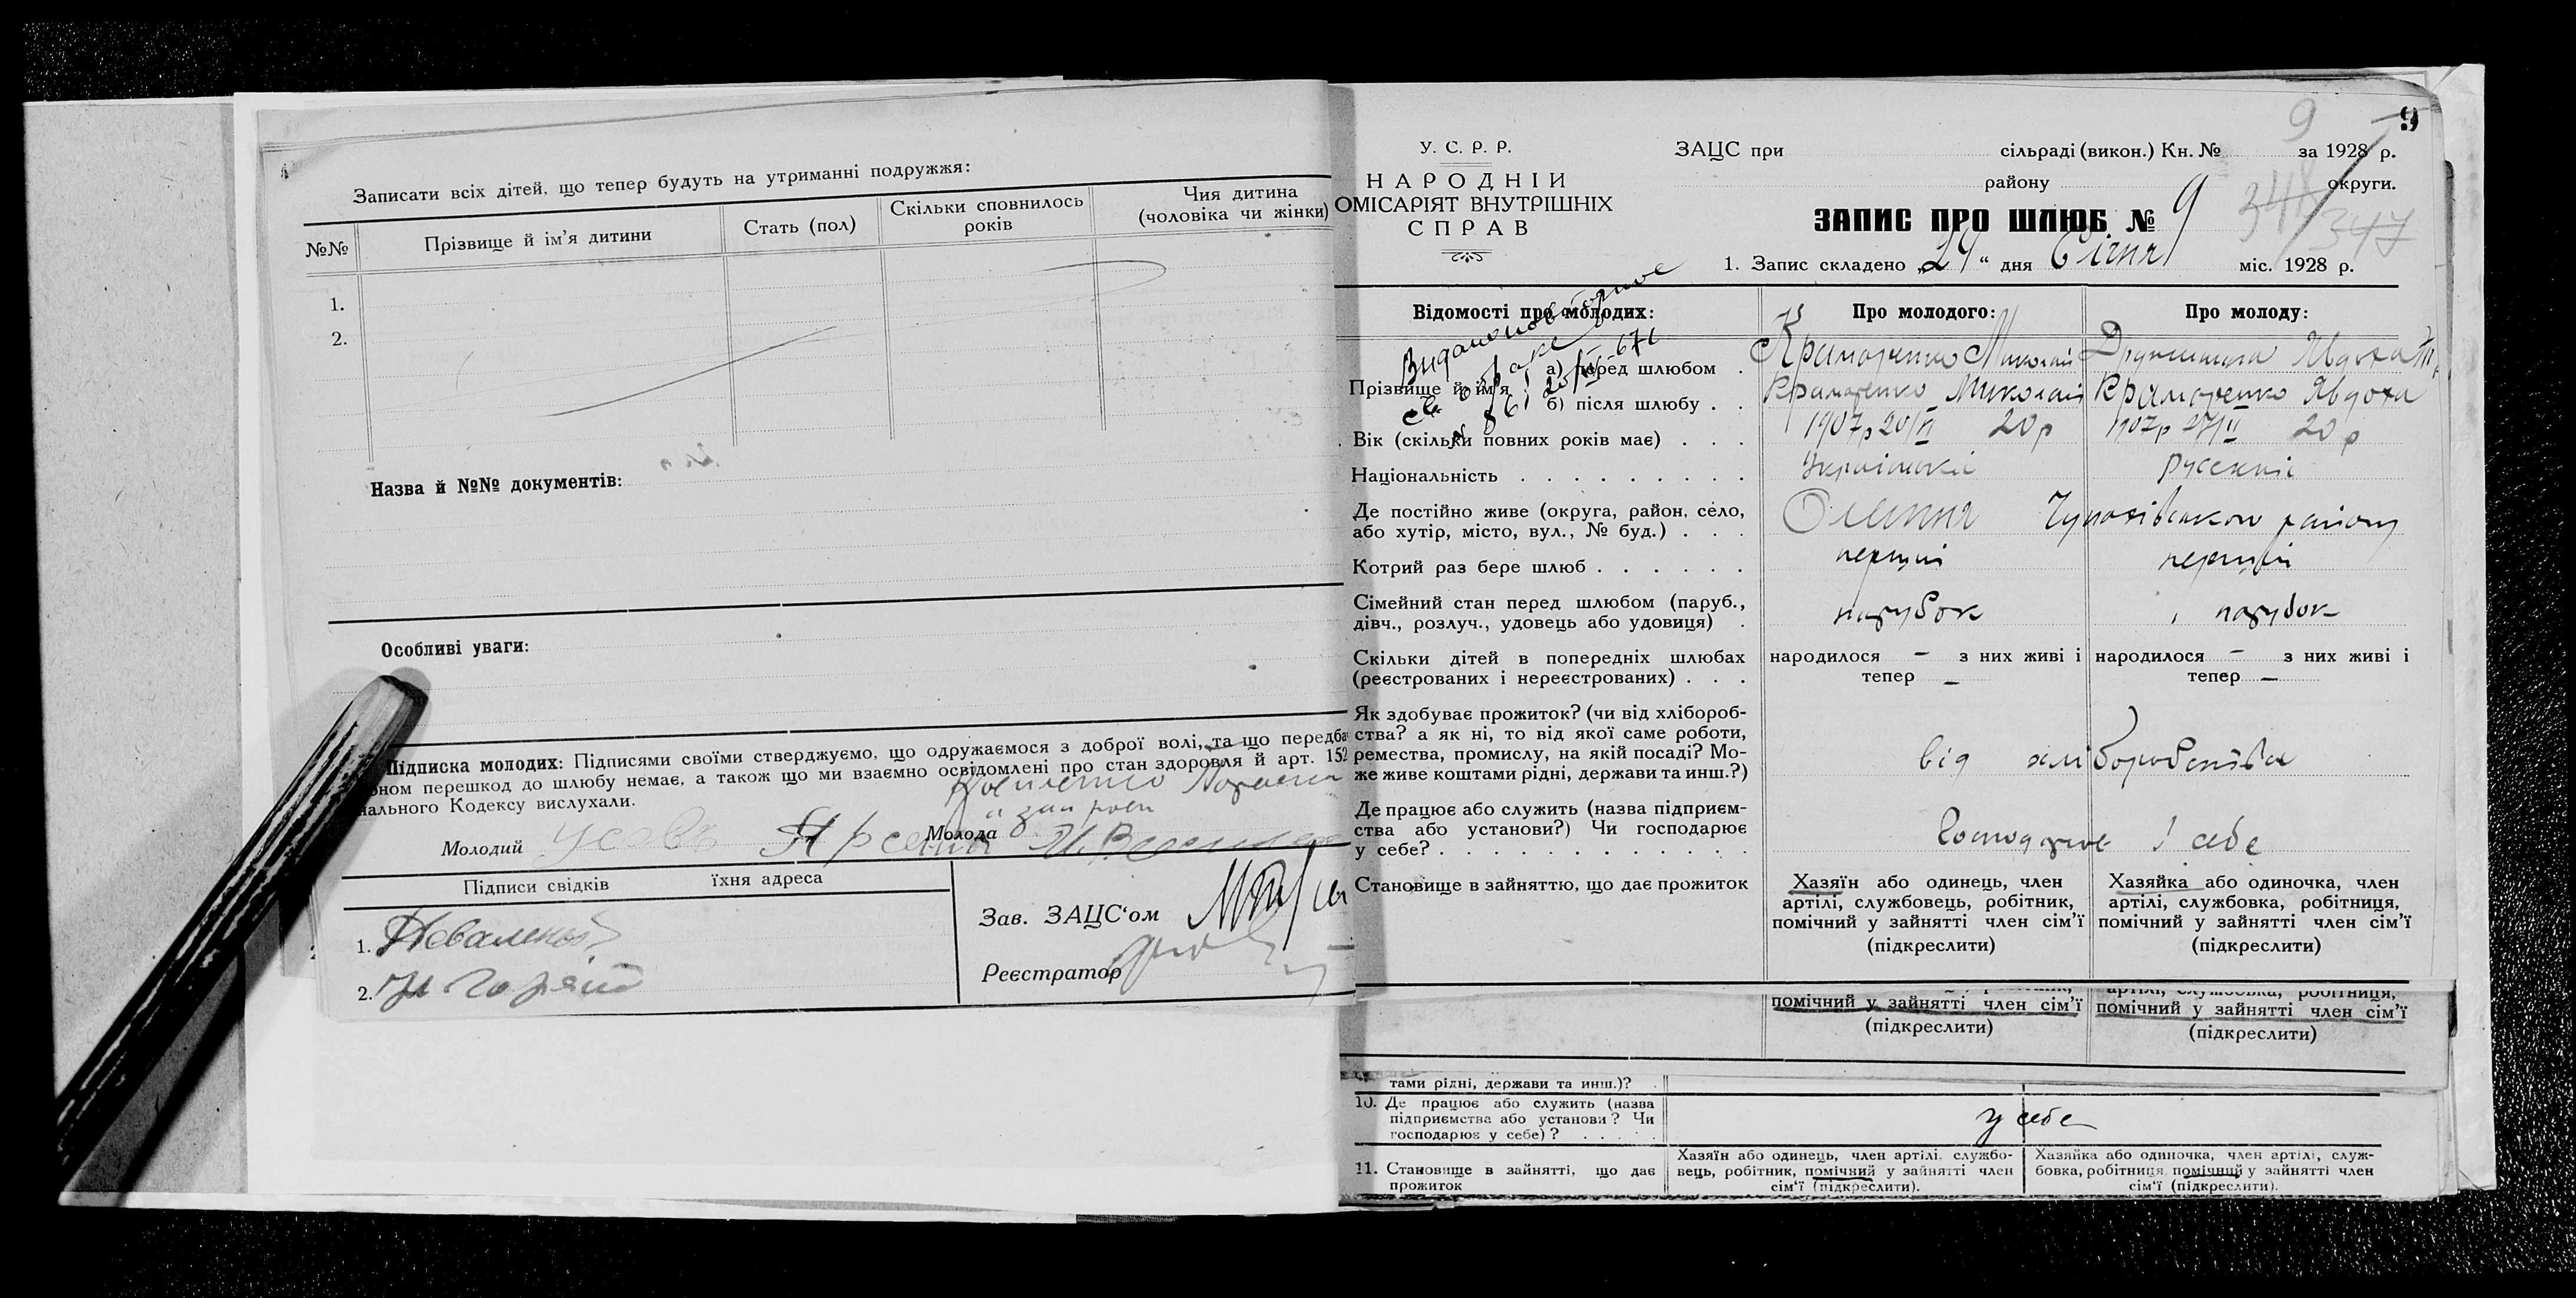 Записати всіх дітей, що тепер будуть на утриманні подружжя:
№№
Прізвище й ім'я дитини
Стать (пол)
Скільки сповнилось років
Чия дитина (чоловіка чи жінки)
1.
2.
Назва й №№ документів:
Особливі уваги:
Підписка молодих: Підписями своїми стверджуємо, що одружаємося з доброї волі, та що передба
ном перешкод до шлюбу немає, а також що ми взаємно освідомлені про стан здоровля й арт. 152
нального Кодексу вислухали.
Молодий
Молода
Підписи свідків
їхня адреса
1.
2.
Зав. ЗАЦС'ом
Реєстратор
9
9
У. С. Р. Р.
НАРОДНІЙ
ОМІСАРІЯТ ВНУТРІШНІХ
СПРАВ
ЗАЦС при сільраді (викон.) Кн. № за 1928 р.
району округи.
348
347
ЗАПИС ПРО ШЛЮБ № 9
1. Запис складено „24“ дня Січня міс. 1928 р.
Відомості про молодих:
Про молодого:
Про молоду:
Прізвище й ім'я
а) перед шлюбом
Крамаренко Миколай
Явдоха
б) після шлюбу
Крамаренко Миколай
Крамаренко Явдоха
Вік (скільки повних років має)
1907р 20/II 20р
1907р 27/II 20р
Національність
Український
русский
Де постійно живе (округа, район, село,
або хутір, місто, вул., № буд.)
Олешня Чупахівського району
Котрий раз бере шлюб
перший
перший
Сімейний стан перед шлюбом (паруб.,
дівч., розлуч., удовець або удовиця)
парубок
парубок
Скільки дітей в попередніх шлюбах
(реєстрованих і нереєстрованих)
народилося — з них живі і
тепер —
народилося — з них живі і
тепер —
Як здобуває прожиток? (чи від хлібороб-
ства? а як ні, то від якої саме роботи,
ремества, промислу, на якій посаді? Мо-
же живе коштами рідні, держави та инш.?)
від хліборобства
Де працює або служить (назва підприєм-
ства або установи?) Чи господарює
у себе?
Господарює у себе
Становище в зайняттю, що дає прожиток
Хазяїн або одинець, член
артілі, службовець, робітник,
помічний у зайнятті член сім'ї
(підкреслити)
Хазяйка або одиночка, член
артілі, службовка, робітниця,
помічний у зайнятті член сім'ї
(підкреслити)
помічний у зайнятті член сім'ї
(підкреслити)
артілі, службовка, робітниця,
помічний у зайнятті член сім'ї
(підкреслити)
тами рідні, держави та инш.)?
10. Де працює або служить (назва
підприємства або установи? Чи
господарює у себе)?
у себе
11. Становище в зайнятті, що дає
прожиток
Хазяїн або одинець, член артілі, службо-
вець, робітник, помічний у зайнятті член
сім'ї (підкреслити).
Хазяйка або одиночка, член артілі, служ-
бовка, робітниця, помічний у зайнятті член
сім'ї (підкреслити).